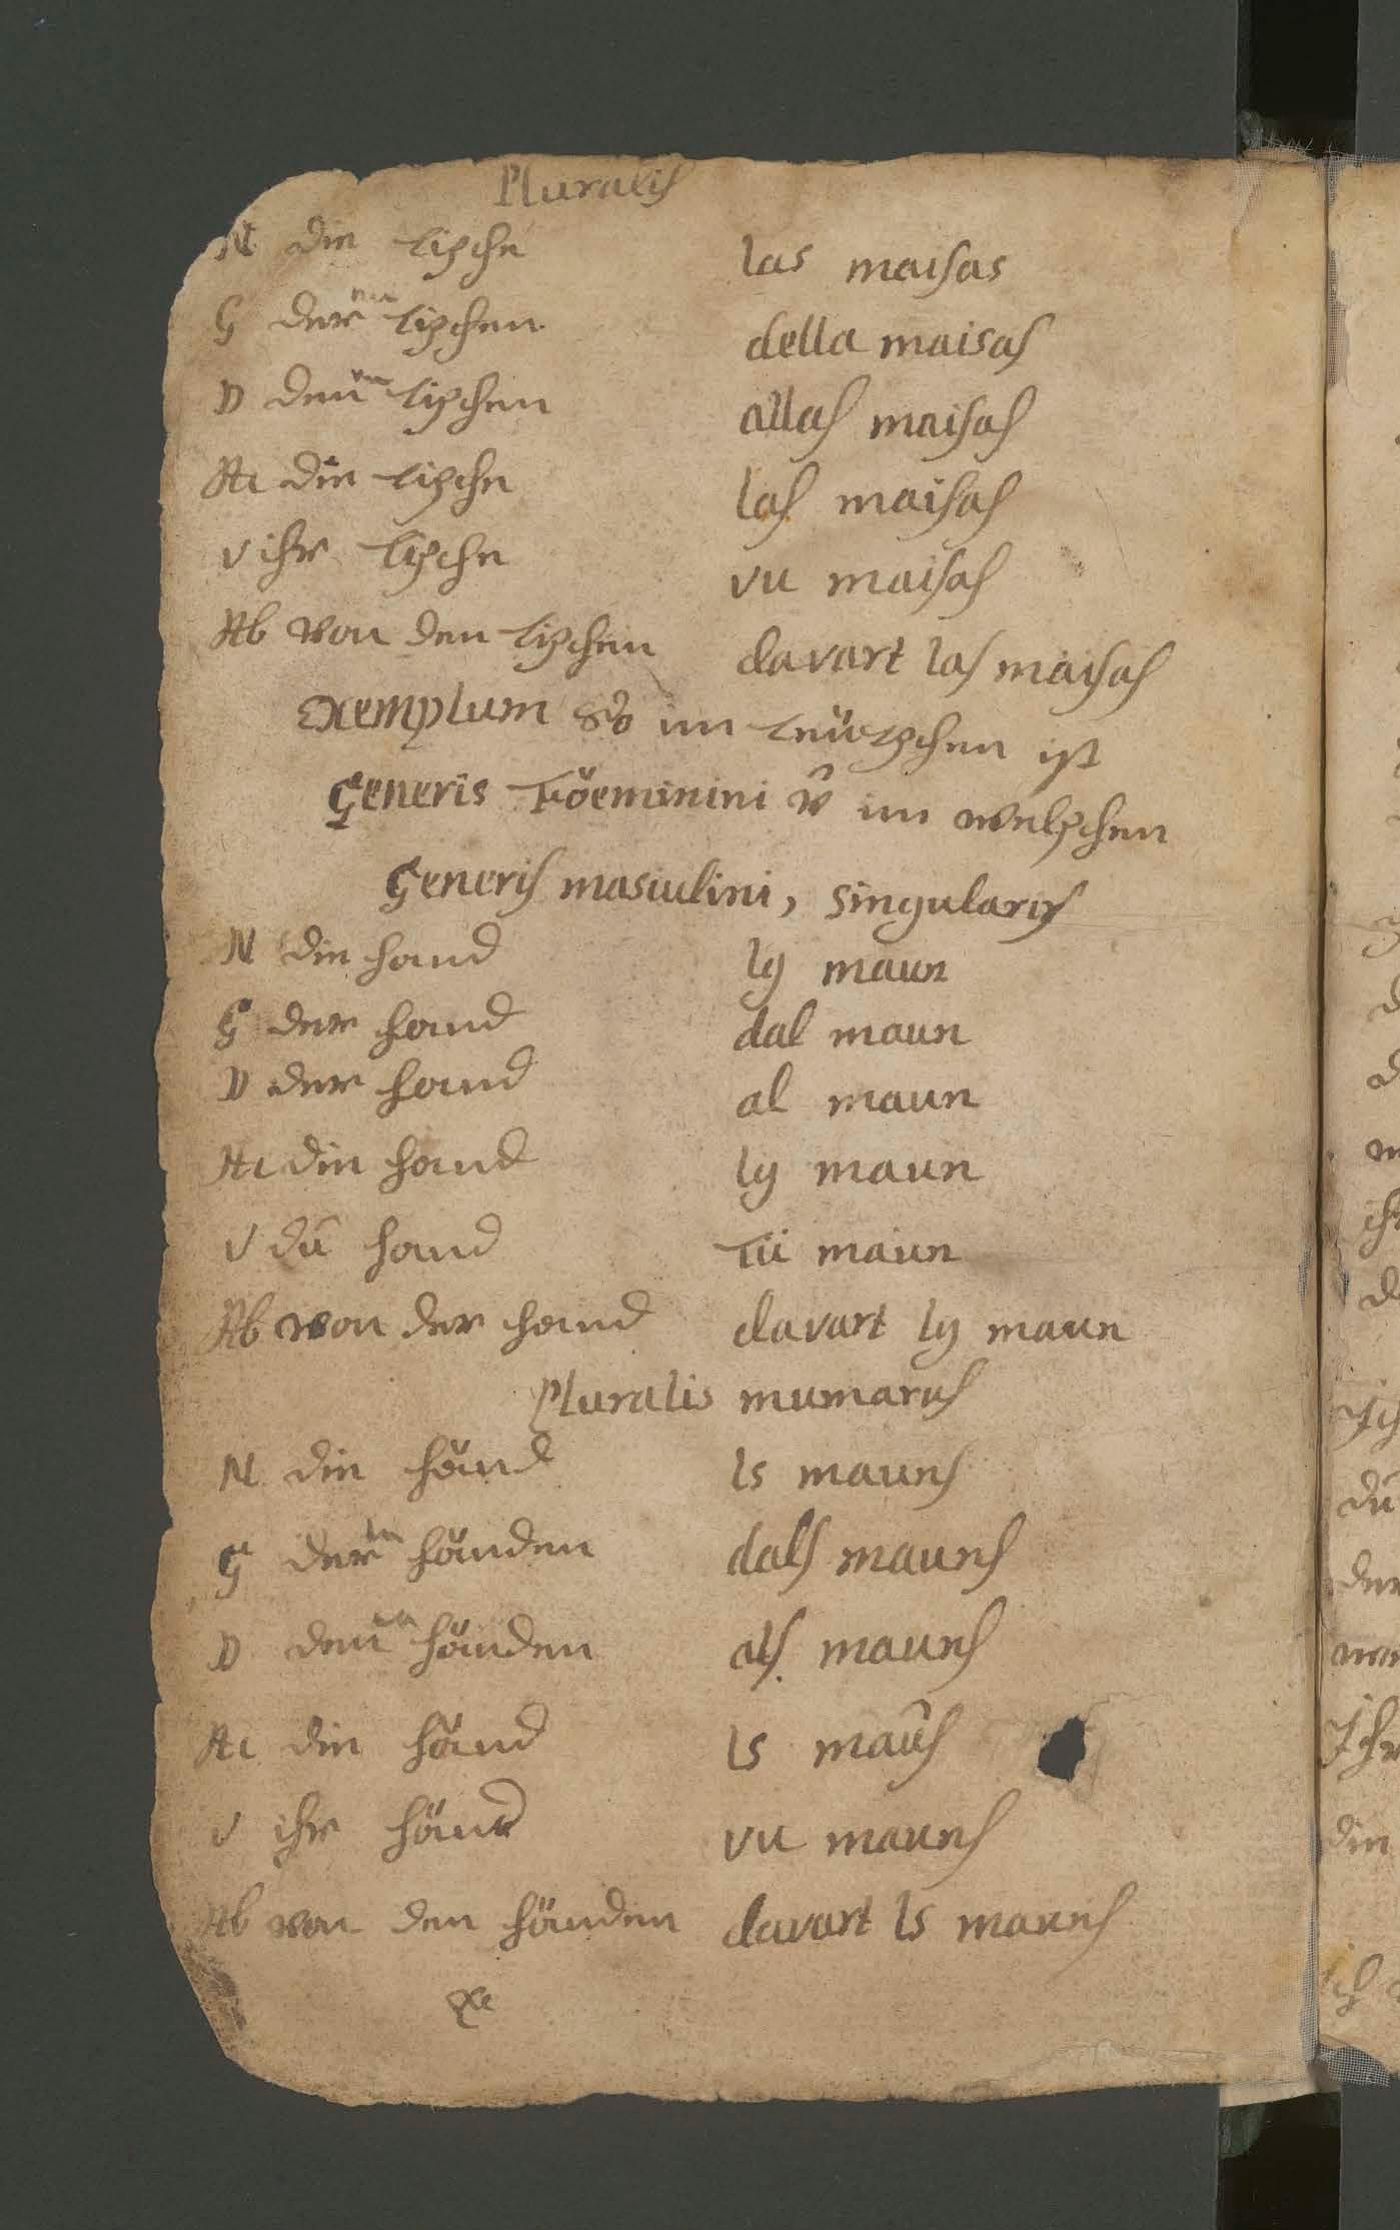 Pluralis
N die tische las maisas
G der tischen della maisas
D den tischen allas maisas
Ac die tische las maisas
V ihr tische vu maisas
Ab von den tischen davart las maisas
Exemplum So im teütschen ist
Generis Föeminini v̂ im welschen
Generis masculini, Singularis
N die hand lÿ maun
G der hand dal maun
D der hand al maun
Ac die hand lÿ maun
V du hand Tü maun
Ab von der hand davart lÿ maun
Pluralis mumarus
N die händ ls mauns
G der händen dals mauns
D den händen als mauns
Ac die händ ls maûs
V ihr händ vu mauns
Ab von den händen davart ls mauns